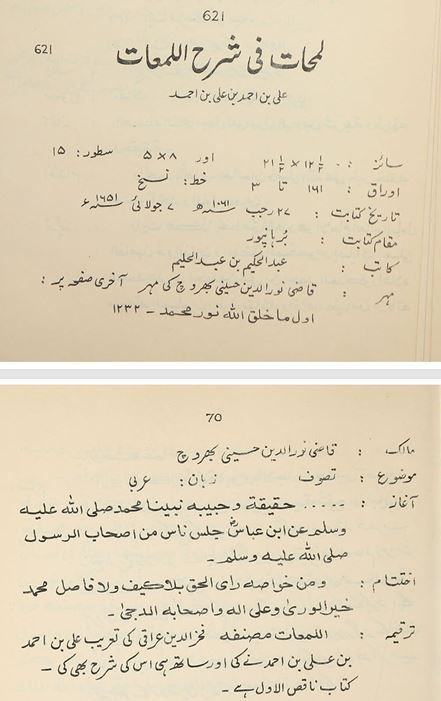 621
621
لمحات فی شرح اللمعات
علی بن احمد بن علی بن احمد
سائز : ۱۲½ × ۲۱½ اور ۸ × ۵ سطور: ۱۵
اوراق : ۱۶۱ تا ۳ خط: نسخ
تاریخ کتابت : ۲۷ رجب ۱۰۶۱ھ ۷ جولائی ۱۶۵۱ء
مقام کتابت : برہانپور
کاتب : عبدالحکیم بن عبدالحلیم
مہر : قاضی نورالدین حسینی بھروچ کی مہر آخری صفحہ پر :
اول ما خلق الله نور محمد ۔ ۱۲۳۲
70
مالک : قاضی نورالدین حسینی بھروچ
موضوع : تصوف زبان: عربی
آغاز : ..... حقیقة وحبیبه نبینا محمد صلی الله علیه
وسلم عن ابن عباسؓ جلس ناس من اصحاب الرسول
صلی الله علیه وسلم ۔
اختتام : ومن خواصه رای الحق بلاکیف ولا فاصل محمد
خیرالوری وعلی اله واصحابه الدجی ۔
ترقیمہ : اللمعات مصنفہ فخرالدین عراقی کی تعریب علی بن احمد
بن علی بن احمد نے کی اور ساتھ ہی اس کی شرح بھی کی ۔
کتاب ناقص الاول ہے ۔